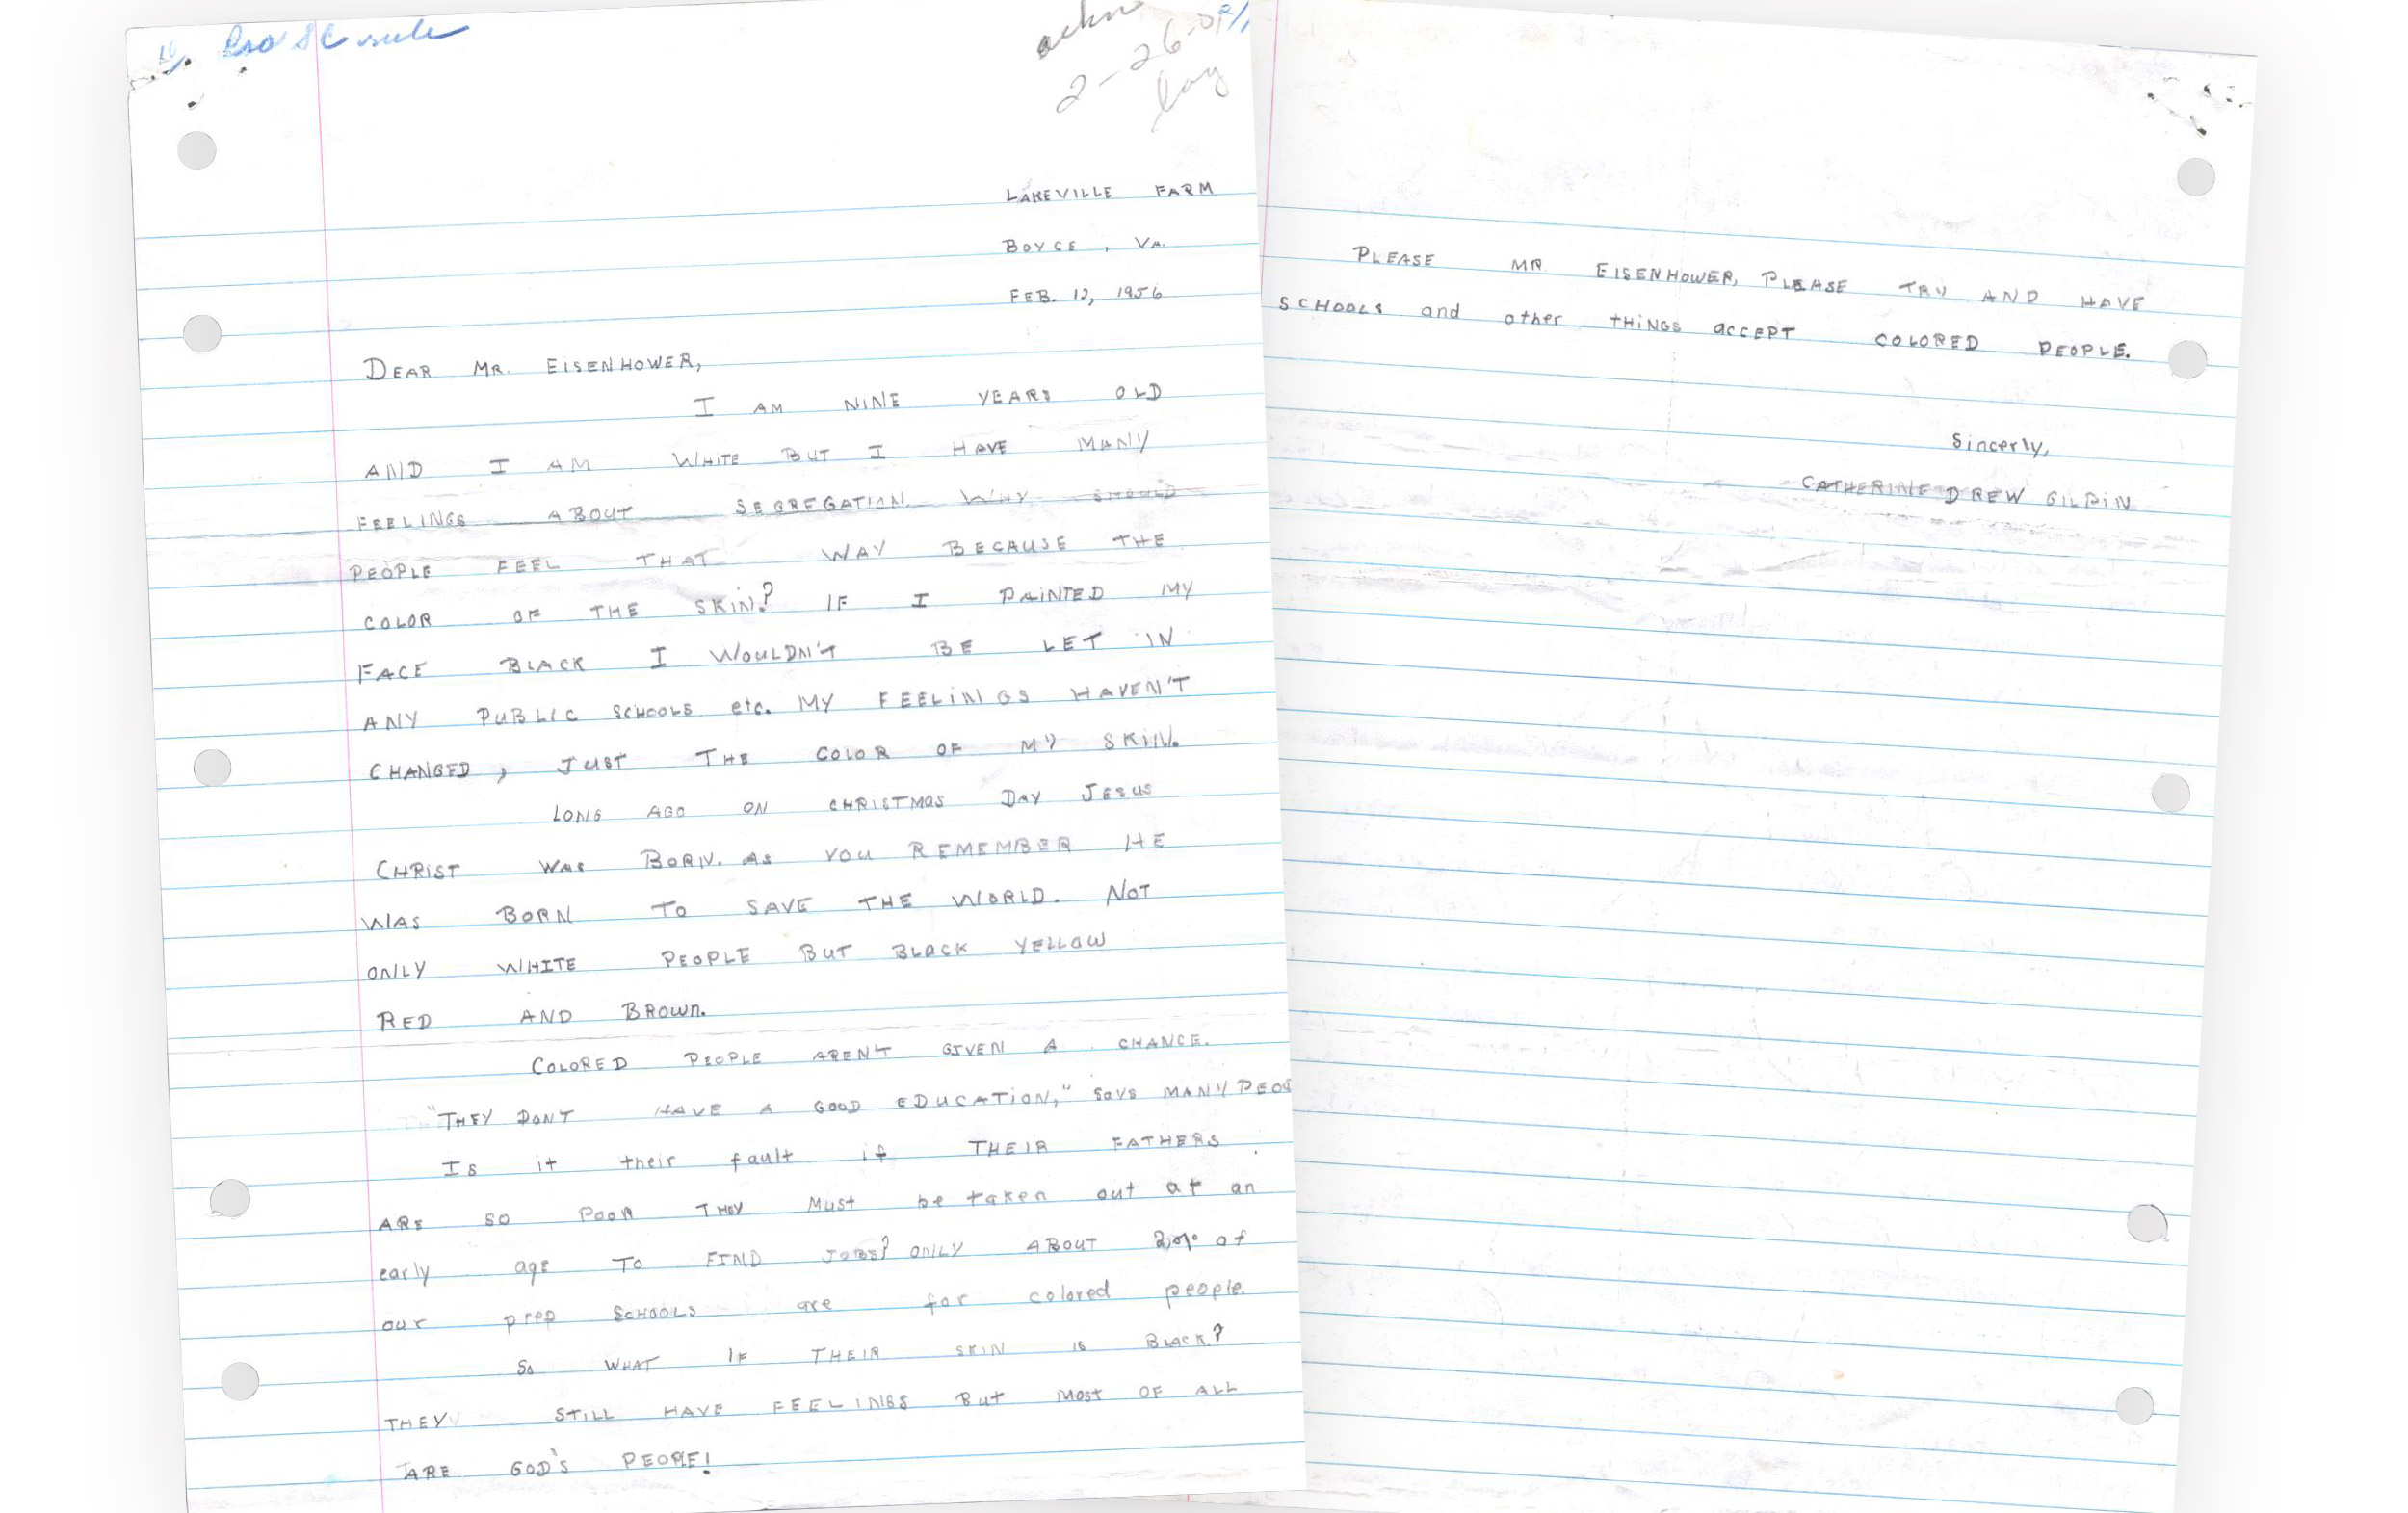 Pro SC rule
ackn
2-26-
LAKEVILLE FARM
BOYCE, VA.
FEB. 12, 1956
DEAR MR. EISENHOWER,
I AM NINE YEARS OLD
AND I AM WHITE BUT I HAVE MANY
FEELINGS ABOUT SEGREGATION. WHY SHOULD
PEOPLE FEEL THAT WAY BECAUSE THE
COLOR OF THE SKIN? IF I PAINTED MY
FACE BLACK I WOULDN'T BE LET IN
ANY PUBLIC SCHOOLS etc. MY FEELINGS HAVEN'T
CHANGED, JUST THE COLOR OF MY SKIN.
LONG AGO ON CHRISTMAS DAY JESUS
CHRIST WAS BORN. AS YOU REMEMBER HE
WAS BORN TO SAVE THE WORLD. NOT
ONLY WHITE PEOPLE BUT BLACK YELLOW
RED AND BROWN.
COLORED PEOPLE AREN'T GIVEN A CHANCE.
"THEY DONT HAVE A GOOD EDUCATION," SAYS MANY PEO
Is it their fault if THEIR FATHERS
ARE SO POOR THEY Must be taken out at an
early age TO FIND JOBS? ONLY ABOUT of
our prep SCHOOLS are for colored people.
So WHAT IF THEIR SKIN IS BLACK?
THEY STILL HAVE FEELINGS BUT MOST OF ALL
ARE GOD'S PEOPLE!
PLEASE MR EISENHOWER, PLEASE TRY AND HAVE
SCHOOLS and other THINGS ACCEPT COLORED PEOPLE.
Sincerly,
CATHERINE DREW GILPIN